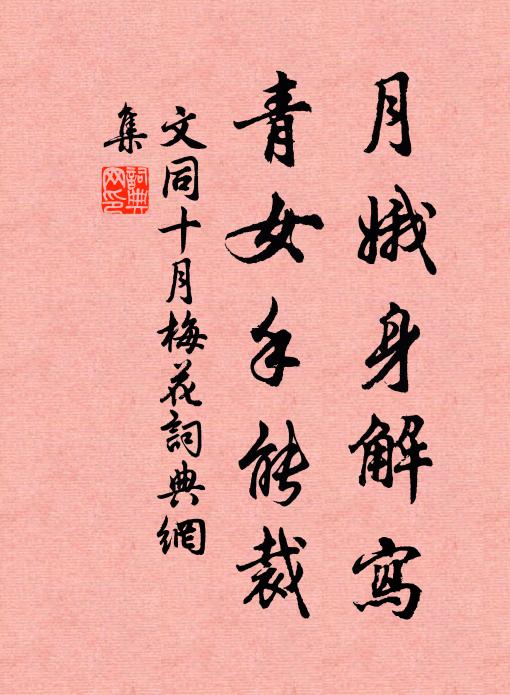 月娥身解寫
青女手能裁
文同十月梅花詞典網
集
詞典
网印